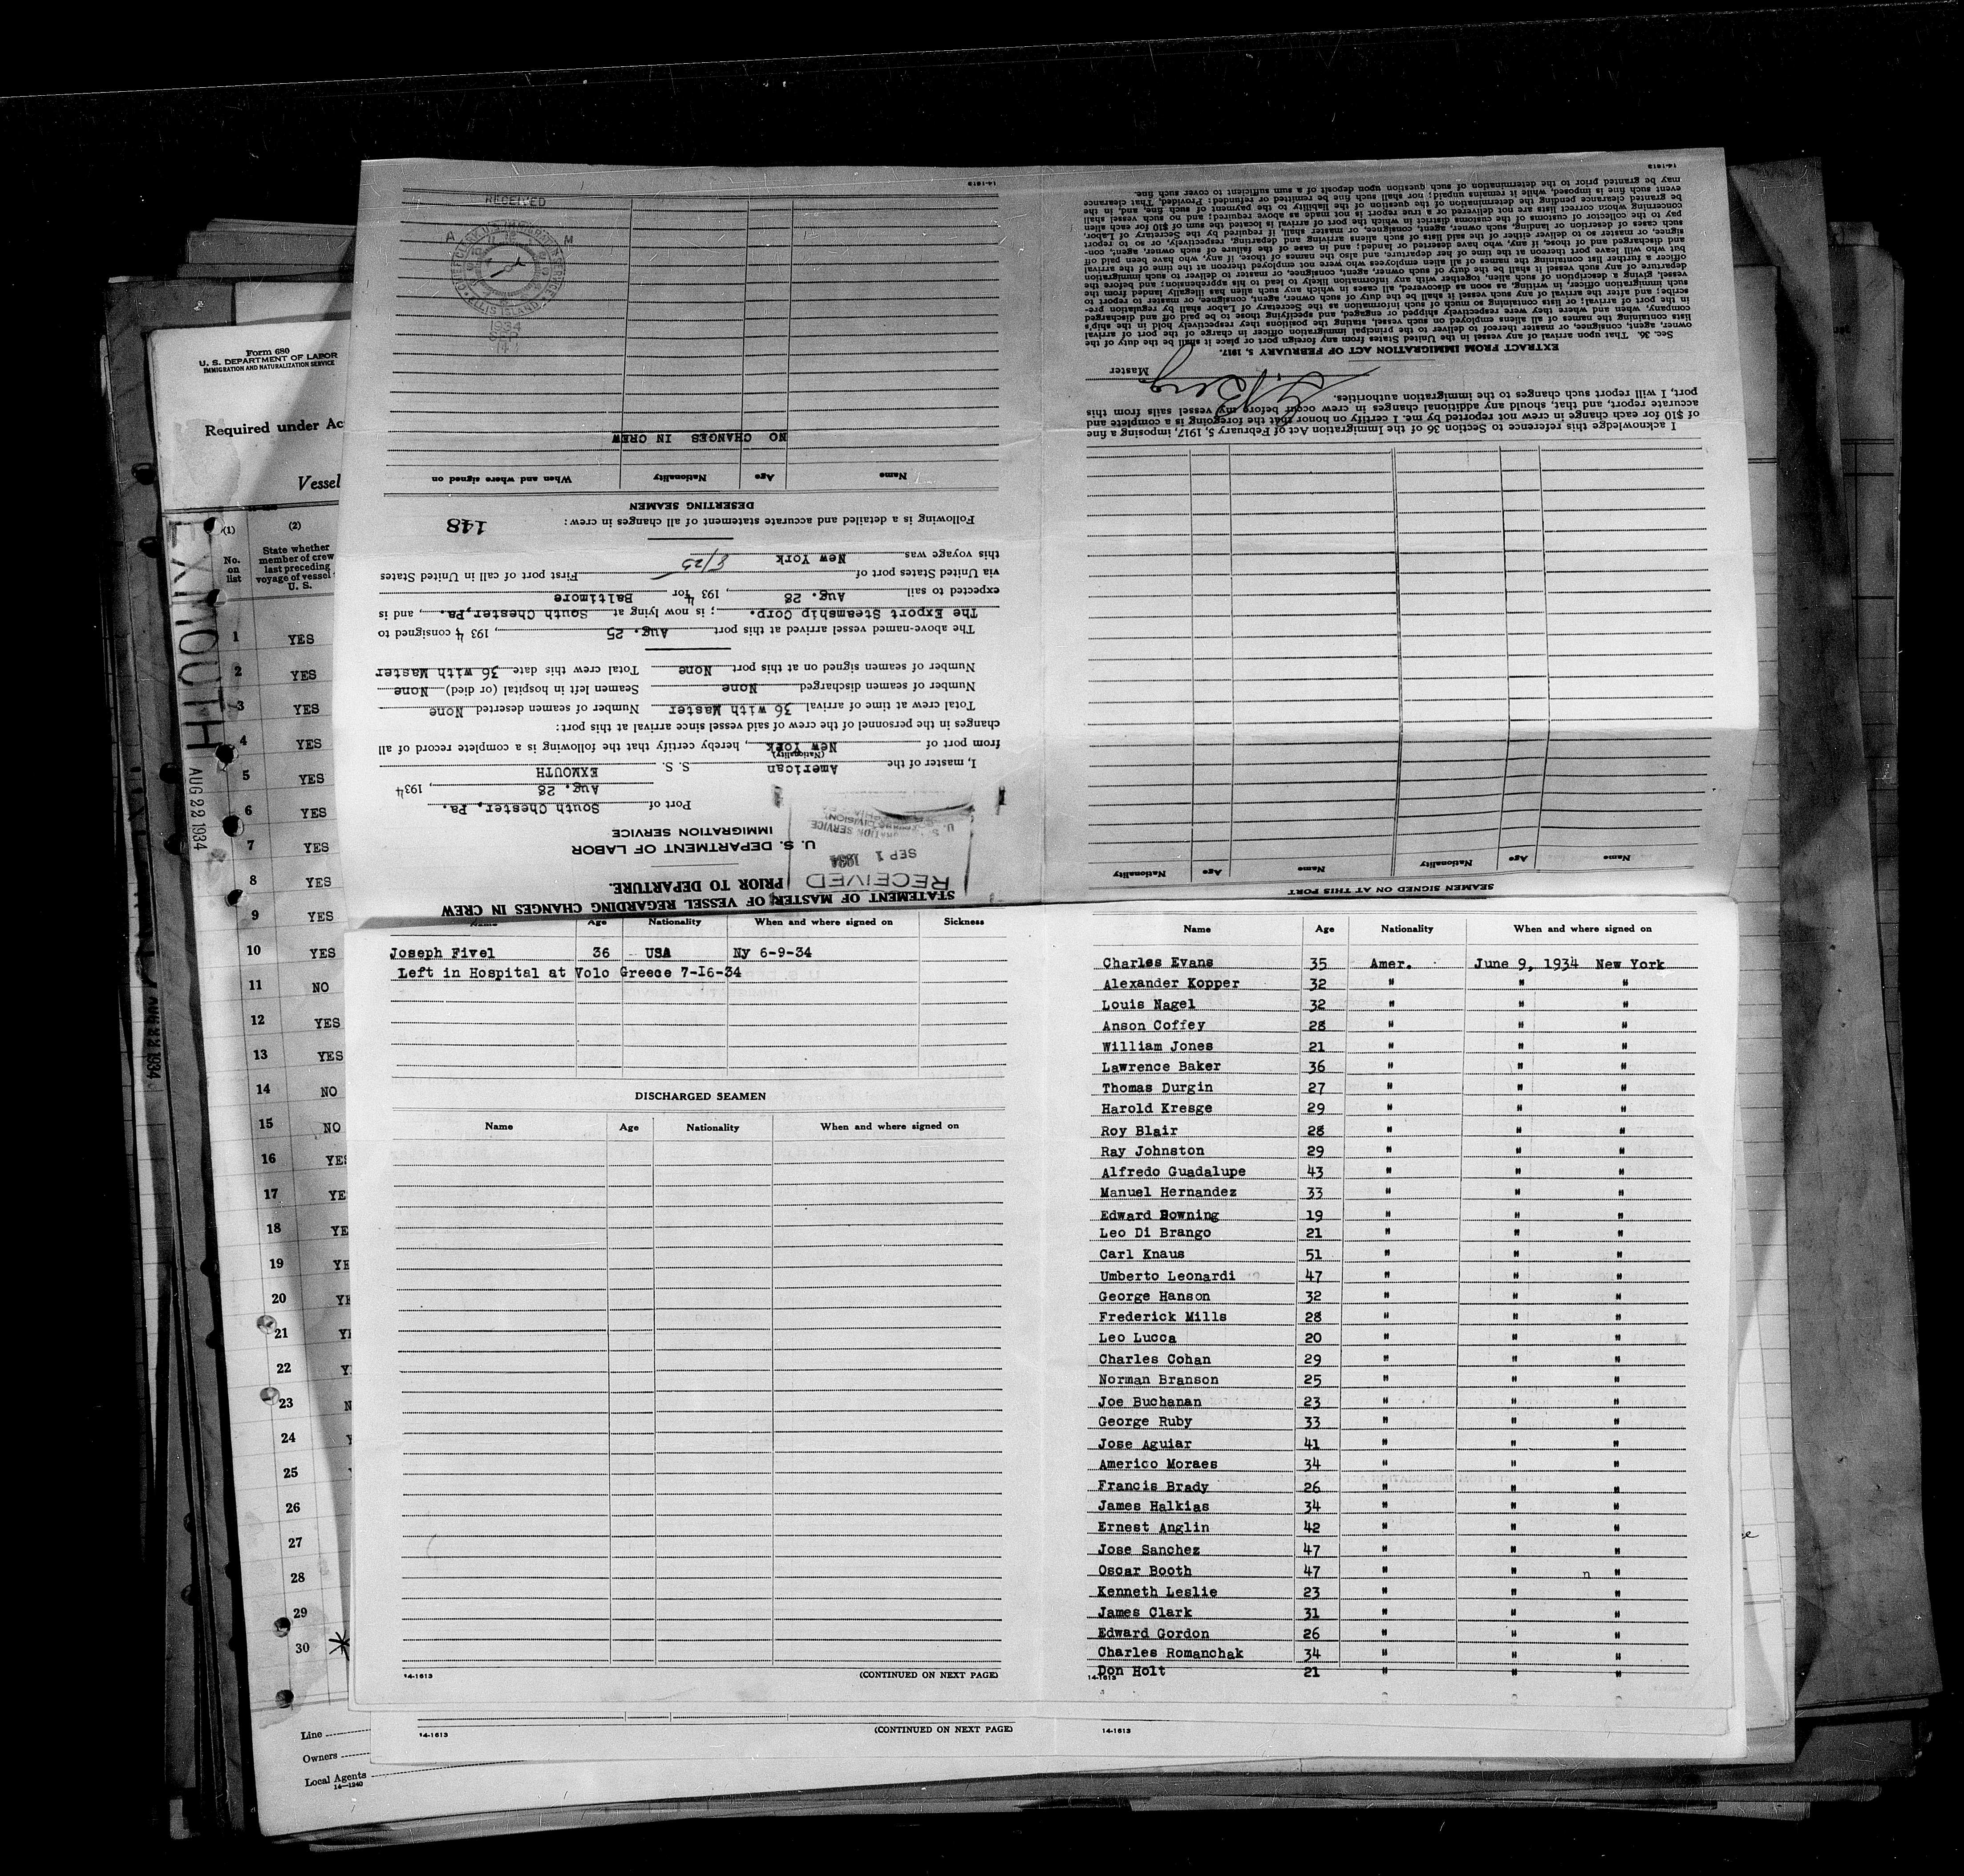 Form 680
U. S. DEPARTMENT OF LABOR
IMMIGRATION AND NATURALIZATION SERVICE
Required under Ac
Vessel
(1)
(2)
No. on list
State whether member of crew last preceding voyage of vessel U. S.
EXMOUTH
AUG 22 1934
1 YES
2 YES
3 YES
4 YES
5 YES
6 YES
7 YES
8 YES
9 YES
10 YES
11 NO
12 YES
13 YES
14 NO
15 NO
16 YES
17 YE
18 YE
19 YE
20 YE
21 YE
22 Y
23 N
24 Y
25
26
27
28
29
30
Line
Owners
Local Agents
14—1240
STATEMENT OF MASTER OF VESSEL REGARDING CHANGES IN CREW
PRIOR TO DEPARTURE.
RECEIVED
SEP 1 1934
U. S. DEPARTMENT OF LABOR
IMMIGRATION SERVICE
Port of South Chester, Pa.
Aug. 28, 1934
I, master of the American S. S. EXMOUTH
(Nationality)
from port of New York, hereby certify that the following is a complete record of all
changes in the personnel of the crew of said vessel since arrival at this port:
Total crew at time of arrival 36 with Master Number of seamen deserted None
Number of seamen discharged None Seamen left in hospital (or died) None
Number of seamen signed on at this port None Total crew this date 36 with Master
The above-named vessel arrived at this port Aug. 25, 1934 consigned to
The Export Steamship Corp.; is now lying at South Chester, Pa., and is
expected to sail Aug. 28, 1934 for Baltimore
via United States port of First port of call in United States
this voyage was New York 8/23
Following is a detailed and accurate statement of all changes in crew:
148
DESERTING SEAMEN
Name Age Nationality When and where signed on
NO CHANGES IN CREW
RECEIVED
A M
ELLIS ISLAND
1934
14-1613
SEAMEN SIGNED ON AT THIS PORT
Name Age Nationality Name Age Nationality
I acknowledge this reference to Section 36 of the Immigration Act of February 5, 1917, imposing a fine
of $10 for each change in crew not reported by me. I certify on honor that the foregoing is a complete and
accurate report, and that, should any additional changes in crew occur before my vessel sails from this
port, I will report such changes to the immigration authorities.
Master
EXTRACT FROM IMMIGRATION ACT OF FEBRUARY 5, 1917.
Sec. 36. That upon arrival of any vessel in the United States from any foreign port or place it shall be the duty of the
owner, agent, consignee, or master thereof to deliver to the principal immigration officer in charge of the port of arrival
lists containing the names of all aliens employed on such vessel, stating the positions they respectively hold in the ship's
company, when and where they were respectively shipped or engaged, and specifying those to be paid off and discharged
in the port of arrival; or lists containing so much of such information as the Secretary of Labor shall by regulation pre-
scribe; and after the arrival of any such vessel it shall be the duty of such owner, agent, consignee, or master to report to
such immigration officer, in writing, as soon as discovered, all cases in which any such alien has illegally landed from the
vessel, giving a description of such alien, together with any information likely to lead to his apprehension; and before the
departure of any such vessel it shall be the duty of such owner, agent, consignee, or master to deliver to such immigration
officer a further list containing the names of all alien employees who were not employed thereon at the time of the arrival
but who will leave port thereon at the time of her departure, and also the names of those, if any, who have been paid off
and discharged and of those, if any, who have deserted or landed; and in case of the failure of such owner, agent, con-
signee, or master so to deliver either of the said lists of such aliens arriving and departing, respectively, or so to report
such cases of desertion or landing, such owner, agent, consignee, or master shall, if required by the Secretary of Labor,
pay to the collector of customs of the customs district in which the port of arrival is located the sum of $10 for each alien
concerning whom correct lists are not delivered or a true report is not made as above required; and no such vessel shall
be granted clearance pending the determination of the question of the liability to the payment of such fine, and, in the
event such fine is imposed, while it remains unpaid; nor shall such fine be remitted or refunded: Provided, That clearance
may be granted prior to the determination of such question upon deposit of a sum sufficient to cover such fine.
14-1613
Name Age Nationality When and where signed on Sickness
Joseph Fivel 36 USA Ny 6-9-34
Left in Hospital at Volo Greece 7-16-34
DISCHARGED SEAMEN
Name Age Nationality When and where signed on
14-1613
(CONTINUED ON NEXT PAGE)
Name Age Nationality When and where signed on
Charles Evans 35 Amer. June 9, 1934 New York
Alexander Kopper 32 " " "
Louis Nagel 32 " " "
Anson Coffey 28 " " "
William Jones 21 " " "
Lawrence Baker 36 " " "
Thomas Durgin 27 " " "
Harold Kresge 29 " " "
Roy Blair 28 " " "
Ray Johnston 29 " " "
Alfredo Guadalupe 43 " " "
Manuel Hernandez 33 " " "
Edward Downing 19 " " "
Leo Di Brango 21 " " "
Carl Knaus 51 " " "
Umberto Leonardi 47 " " "
George Hanson 32 " " "
Frederick Mills 28 " " "
Leo Lucca 20 " " "
Charles Cohan 29 " " "
Norman Branson 25 " " "
Joe Buchanan 23 " " "
George Ruby 33 " " "
Jose Aguiar 41 " " "
Americo Moraes 34 " " "
Francis Brady 26 " " "
James Halkias 34 " " "
Ernest Anglin 42 " " "
Jose Sanchez 47 " " "
Oscar Booth 47 " " n "
Kenneth Leslie 23 " " "
James Clark 31 " " "
Edward Gordon 26 " " "
Charles Romanchak 34 " " "
Don Holt 21 " " "
14-1613
14-1613
(CONTINUED ON NEXT PAGE)
14-1613